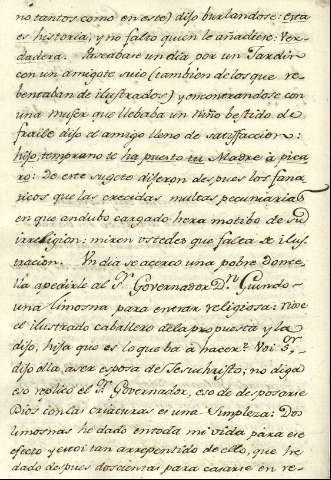 no tantos como en este) dijo burlandose: esta
es historia, y no faltó quien le añadiese: Ver-
dadera. Paseabase un dia por un Jardin
con un amigote suio (tambien de los que re-
bentaban de ilustrados) y encontrandose con
una mujer que llebaba un Niño bestido de
fraile dijo el amigo lleno de satisfaccion:
hijo, temprano te ha puesto tu Madre à pica-
ro: De este sugeto dijeron despues los fana-
ticos que las crecidas multas pecuniarias
en que andubo cargado hera motibo de su
irreligion: miren ostedes que falta de ilus-
tracion. Un dia se acerco una pobre Donce-
lla apedirle al Sr. Governador Dn. Guindo
una limosna para entrar religiosa: Vive
el ilustrado caballero dela propuesta y la
dijo, hija que es lo que ba à hacer? Voi Sr.,
dijo ella, aser esposa de Jesuchristo; no diga
eso replico el Sr. Governador, eso de desposarse
Dios con las criaturas es una simpleza: Dos
limosnas he dado en toda mi vida para ese
efecto y estoi tan arrepentido de ello, que he
dado despues doscientas para casarse en re-